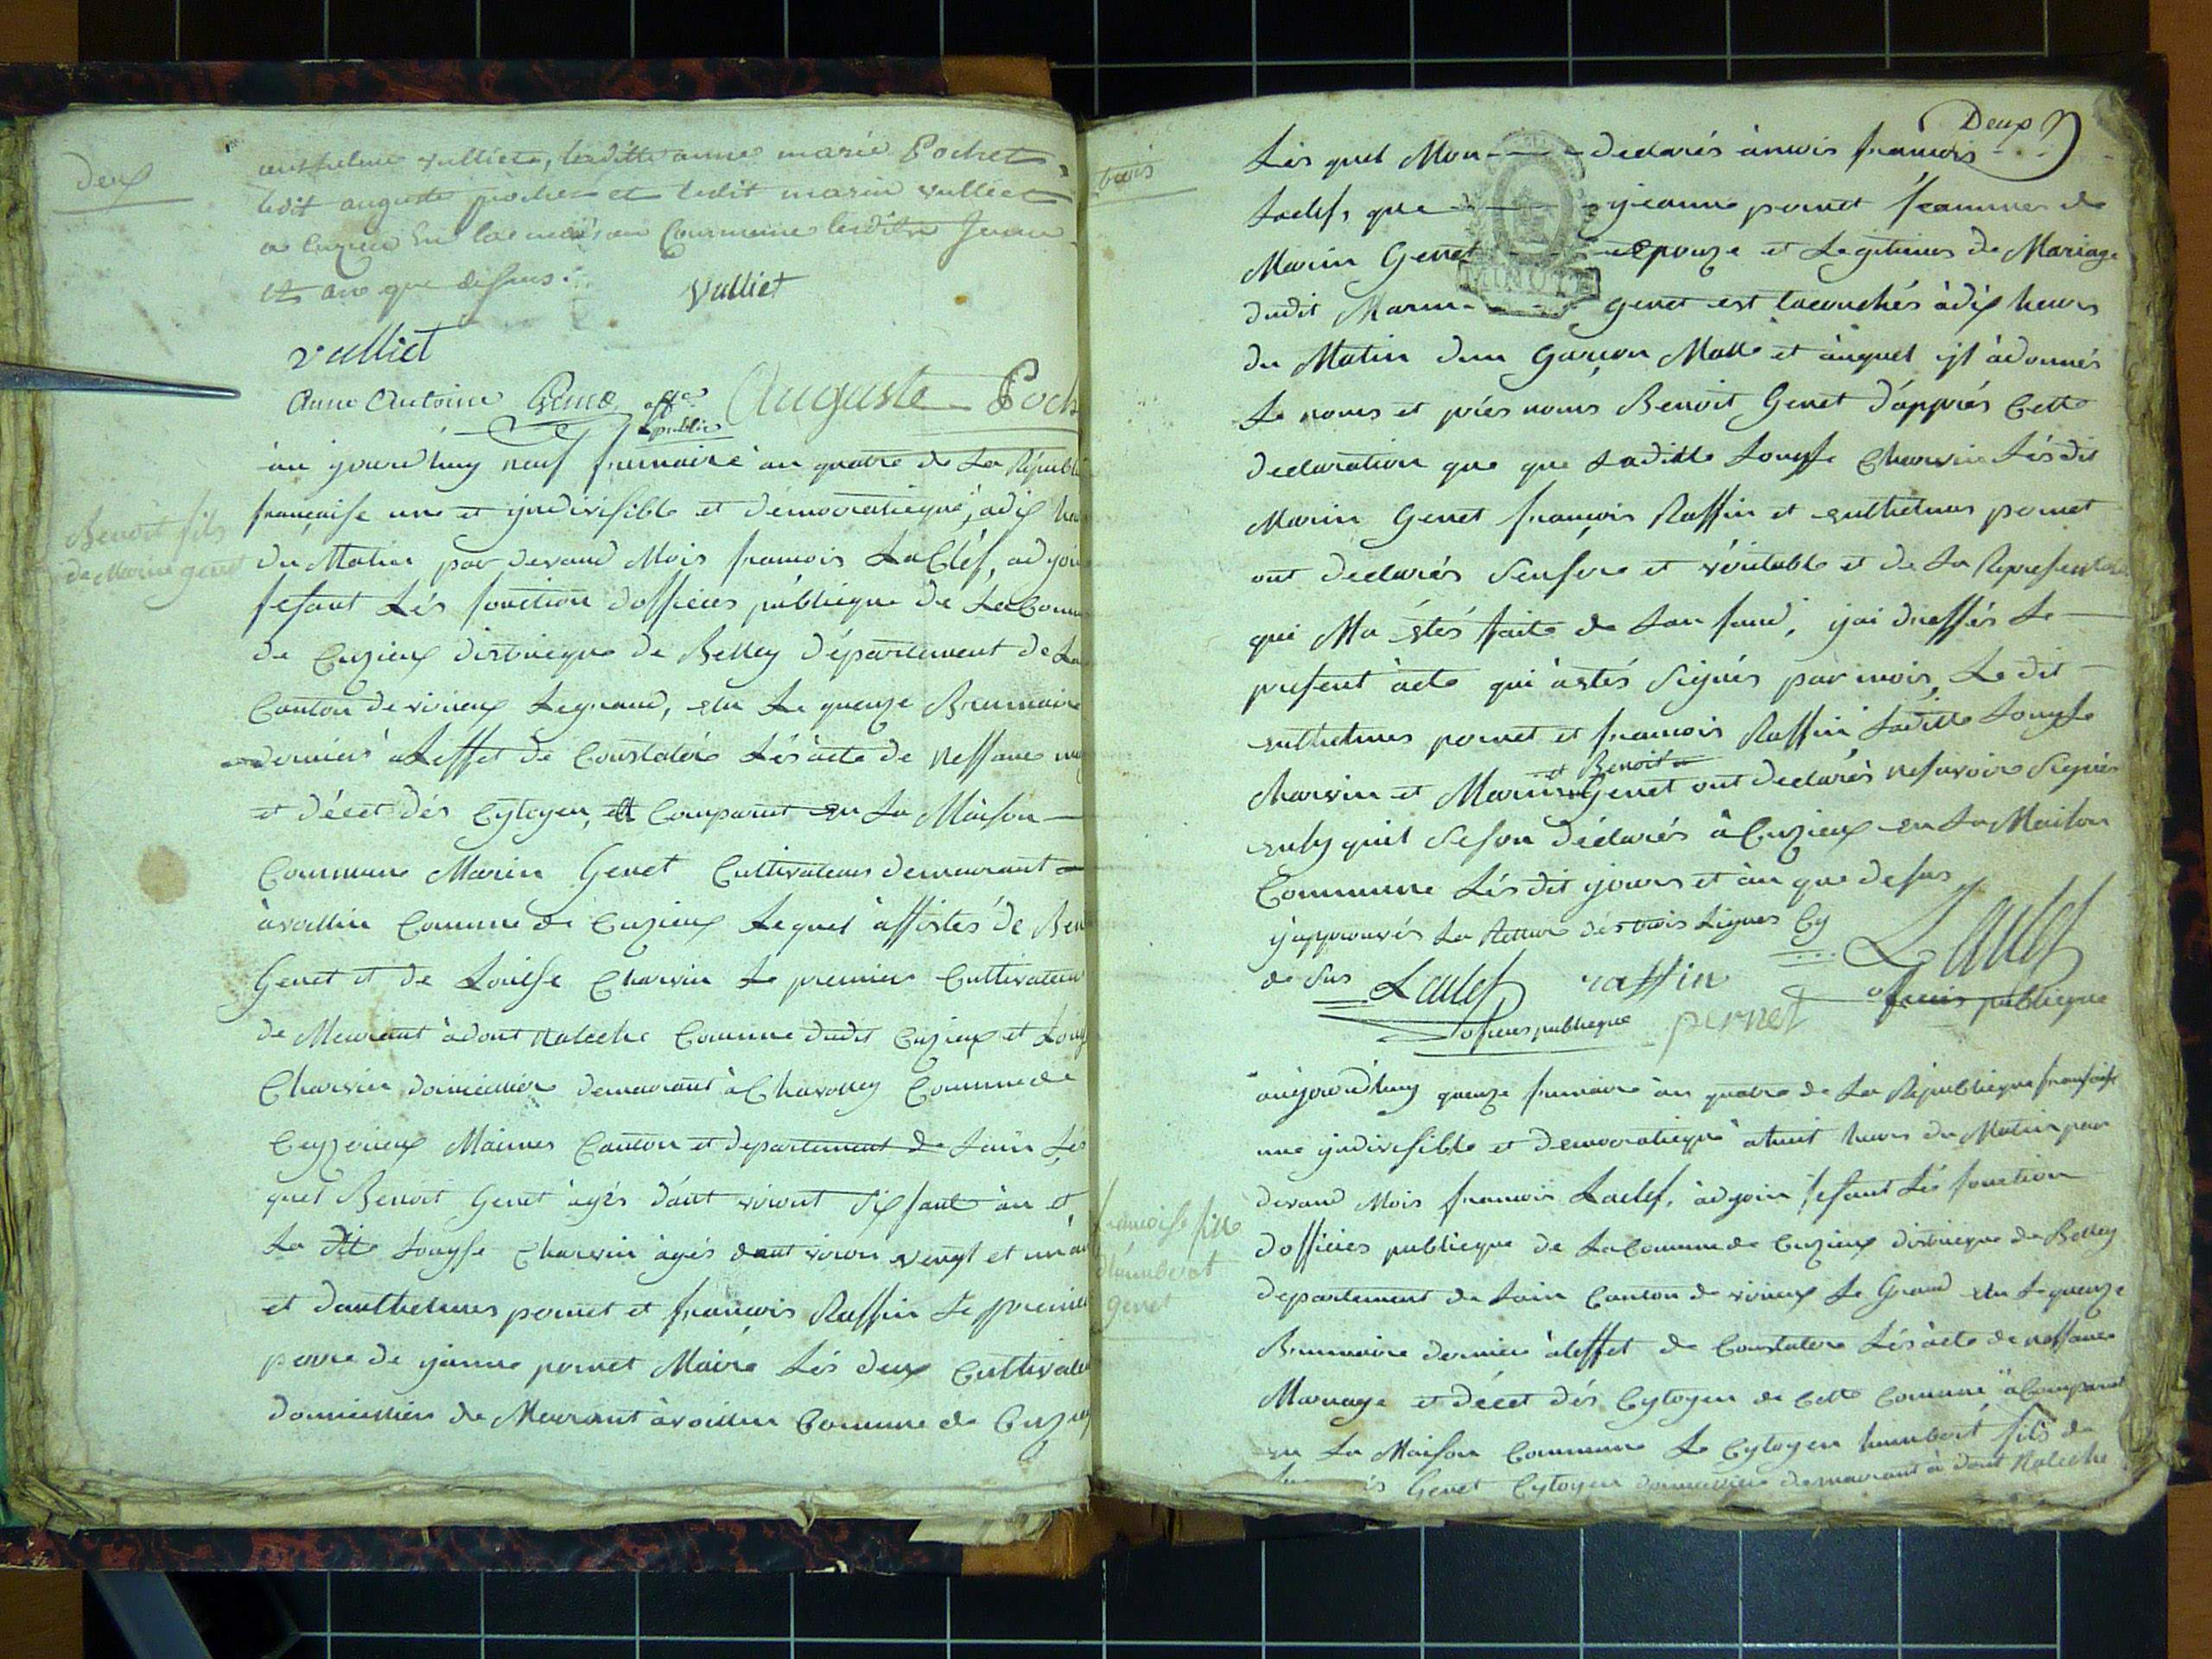 deux
anthelme vulliet, laditte anne marie Pochet
ledit auguste pochet et ledit marin vulliet
a cuzieu en la maison Commune lesdits Jour
et an que dessus.
Vulliet
vulliet
Anne Antoine off public Auguste Poch
au yourdhuy neuf frimaire an quatre de La Républi
francaisse une et yndivissible et démocratieque, adix heu
Benoit fils
de Marin genet
du Matin par devand Mois francois LaClef, adyoin
fesant Lés fonction dofficies publieque de LaComm
de Cuzieux distrieque de Belley département de La
Canton de virieux Legrand, elu Le quenze Brumaire
dernier a Leffet de Constatér Lés acte de Nessance m
et décet dés Cytoyen, Comparut en La Maison
Commune Marin Genet Cultivateur demeurant
à vollien Comune de Cuzieux Le quel assistés de Ben
Genet et de Louisse Charvin Le premier Cultivateur
de Meurant à dont Kaleche Comune dudit Cuzieux et Louys
Charvin domicillier demeurant à Chavolley Commede
Ceyzerieux Maimes Canton et departement de Lain Lés
quel Benoit Genet agés dant viront Sissante an et
La dite Louysse Charvin àgés dant viron vengt et un an
et danthelmes pernet et francois Raffin Le premier
perre de yanne pernet Maire Lés deux Cultivate
domicillier de Meurant à voillien Comune de Cuzieux
Deux
trois
Lés quel Mon declarés à mois francois
Laclef, que yeanne pernet feammes de
Marin Genet epouze et Legitimes de Mariage
MINUTE
dudit Marin Genet est Lacouchés à dix heurs
du Matin dun Garcon Malle et auquel yl à donnés
Le noms et prés noms Benoit Genet d'apprés Cette
declaration que que Laditte Louysse Charvin Lésdit
Marin Genet francois Raffin et enthelmes pernet
ont declarés Senserre et véritable et de La Represent
qui Ma étés faite de Lanfand, yai dressés Le
present àcte qui à etés Signés par mois, Le dit
enthelmes pernet et francois Raffin Laditte Louysse
et Benoit
Charvin et Marin Genet ont declarés ne savoire Signés
quil Seson déclarés à Cuzieux en La Maison
Commune Lés dit yours et àn que desus
yapprouvés La Retture dés trois Lignes Cy
de sus Laclef raffin Laclef
oficies publieque pernet oficies publieque
aujourdhuy quenze frimaire àn quatre de La Republieque fransaise
une yndivisible et democratieque a huit heurs du Matin par
devand Mois francois Laclef, àdyoin fesant Lés fonction
francoisse fille
d'humbert
genet
dofficies publieque de LaComune de Cuzieux distrieque de Belley
departement de Lain Canton de virieux Le Grand elu Le quenze
Brumaire dernier à leffet de Constatere Lés àcte de nessance
Mariage et décet dés Cytoyen de Cette Comune à Comparut
en La Maison Commune Le Cytoyen humbert fils de
Genet Cytoyen domicillier demeurant à dont Kaleche